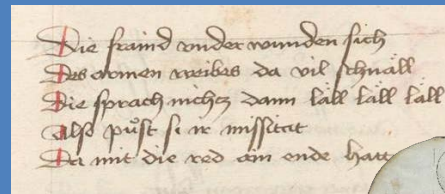 Die fraind vnder wunden sich
Des armen weibes da vil schnäll
Die sprach nichtz dann läll läll läll
also puͦst si ir missitat
Da mit die red ain ende hatt